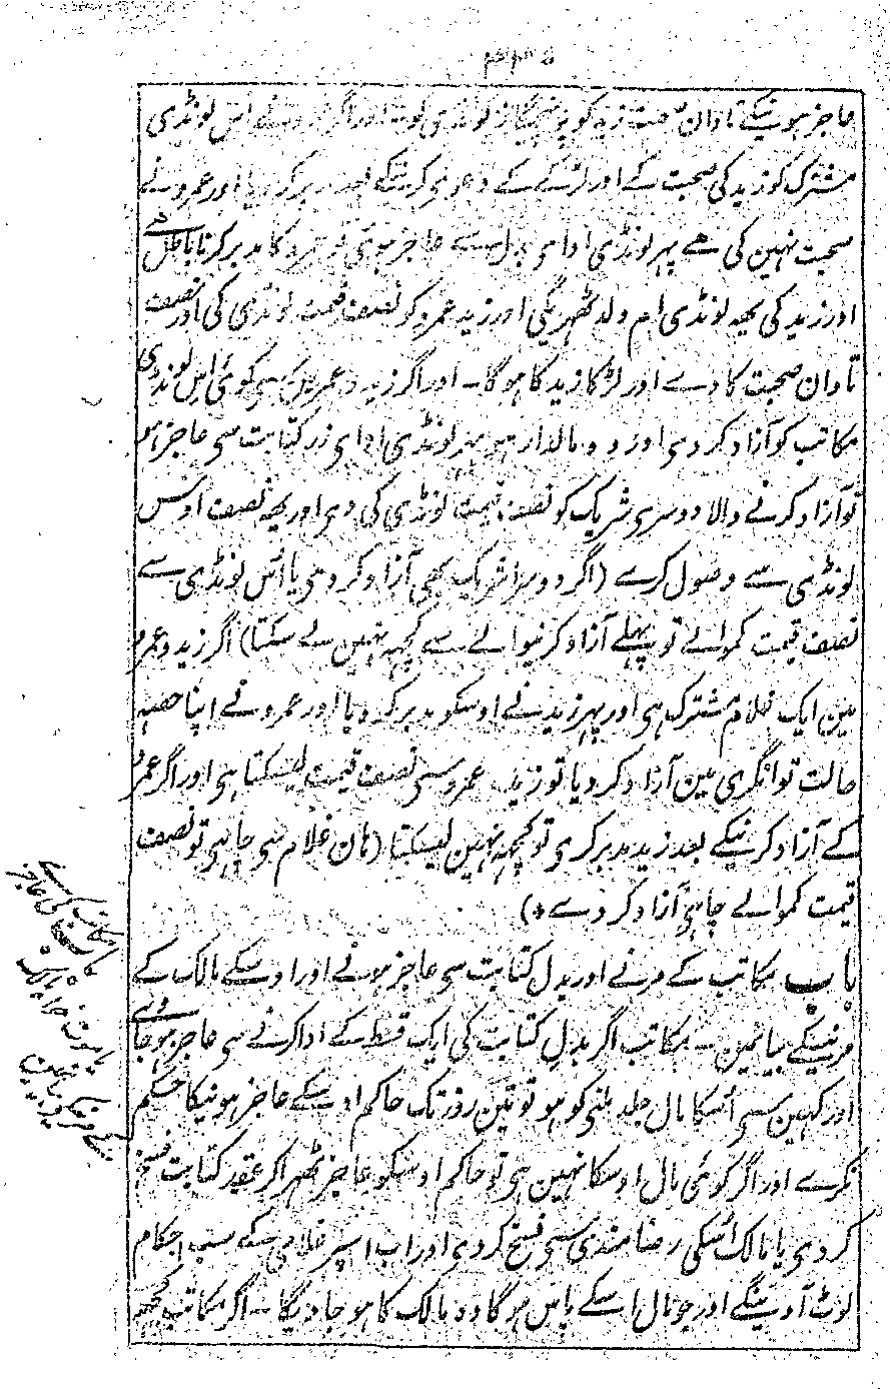 عاجز ہونیکے تاوان صحبت زید کو لونڈی اور اگر نے اس لونڈی
مشترک کو زید کی صحبت کے اور لڑکے کے دعوی کرنیکے بعد مدبر کردیا اور عمرو نے
صحبت نہین کی ھے پہر لونڈی ادای بدل سے عاجز ہوئی تو عمرو کا مدبر کرنا باطل ھے
اور زید کی یہہ لونڈی ام ولد ٹھہریگی اور زید عمرو کو نصف قیمت لونڈی کی اور نصف
تاوان صحبت کا دے اور لڑکا زید کا ہوگا۔ اور اگر زید و عمر مین سی کوئی اس لونڈی
مکاتب کو آزاد کردی اور وہ مالدار ہی پہر لونڈی ادای زر کتابت سی عاجز ہو
تو آزاد کرنے والا دوسری شریک کو نصف قیمت لونڈی کی دی اور یہہ نصف اوس
لونڈی سے وصول کرے (اگر دوسرا شریک بھی آزاد کردی یا اس لونڈی سے
نصف قیمت کموالے تو پہلے آزاد کرنیوالے سے کچہہ نہین لے سکتا) اگر زید و عمرو
مین ایک غلام مشترک ہی اور پہر زید نے اوسکو مدبر کردیا اور عمرو نے اپنا حصہ
حالت توانگری مین آزاد کردیا تو زید عمرو سی نصف قیمت لیسکتا ہی اور اگر عمرو
کے آزاد کرنیکے بعد زید مدبر کری تو کچہہ نہین لیسکتا (ہان غلام سی چاہی تو نصف
قیمت کموالے چاہی آزاد کردے*)
باب مکاتب کے مرنے اور بدل کتابت سی عاجز ہونے اور اوسکے مالک کے
مرنیکے بیانمین۔ مکاتب اگر بدل کتابت کی ایک قسط کے ادا کرنے سی عاجز ہوجاوے
اور کہین سی اسکا مال جلد ملنی کو ہو تو تین روز تک حاکم اوسکے عاجز ہونیکا حکم
نکرے اور اگر کوئی مال اوسکا نہین ہی تو حاکم اوسکو عاجز ٹھہرا کر عقد کتابت فسخ
کردی یا مالک اسکی رضامندی سی فسخ کردی اور اب اسپر غلامی کے سب احکام
لوٹ آوینگے اور جو مال اسکے پاس ہوگا وہ مالک کا ہوجاویگا۔ اگر مکاتب کچہہ